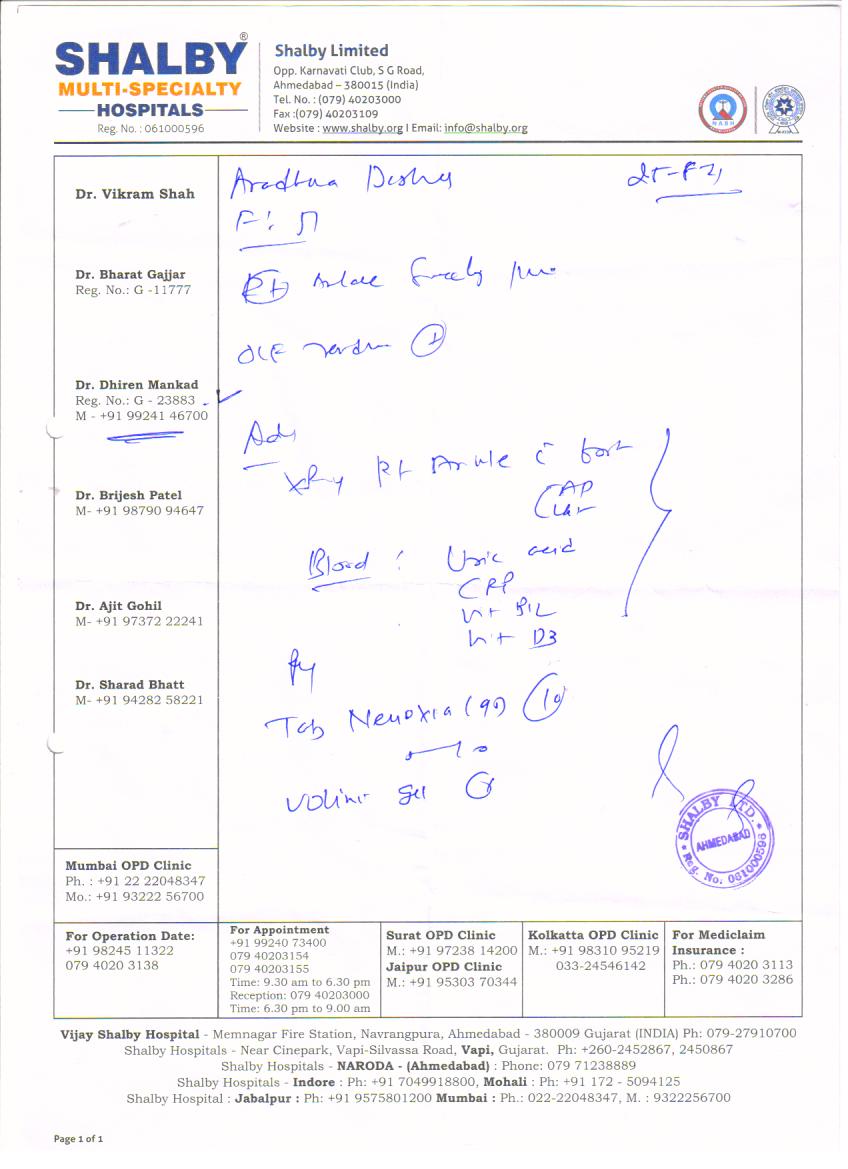 SHALBY®
MULTI-SPECIALTY
HOSPITALS
Reg. No. : 061000596
Shalby Limited
Opp. Karnavati Club, S G Road,
Ahmedabad – 380015 (India)
Tel. No. : (079) 40203000
Fax :(079) 40203109
Website : www.shalby.org I Email: info@shalby.org
NABH
Dr. Vikram Shah
Dr. Bharat Gajjar
Reg. No.: G -11777
Dr. Dhiren Mankad
Reg. No.: G - 23883
M - +91 99241 46700
Dr. Brijesh Patel
M- +91 98790 94647
Dr. Ajit Gohil
M- +91 97372 22241
Dr. Sharad Bhatt
M- +91 94282 58221
Adv
XRay Rt Ankle c foot
AP
Lat
Blood : Uric acid
CRP
Vit B12
Vit D3
Tab Nenoxia (90) 10
gel
SHALBY LTD.
AHMEDABAD
Reg. No. 061000596
Mumbai OPD Clinic
Ph. : +91 22 22048347
Mo.: +91 93222 56700
For Operation Date:
+91 98245 11322
079 4020 3138
For Appointment
+91 99240 73400
079 40203154
079 40203155
Time: 9.30 am to 6.30 pm
Reception: 079 40203000
Time: 6.30 pm to 9.00 am
Surat OPD Clinic
M.: +91 97238 14200
Jaipur OPD Clinic
M.: +91 95303 70344
Kolkatta OPD Clinic
M.: +91 98310 95219
033-24546142
For Mediclaim
Insurance :
Ph.: 079 4020 3113
Ph.: 079 4020 3286
Vijay Shalby Hospital - Memnagar Fire Station, Navrangpura, Ahmedabad - 380009 Gujarat (INDIA) Ph: 079-27910700
Shalby Hospitals - Near Cinepark, Vapi-Silvassa Road, Vapi, Gujarat. Ph: +260-2452867, 2450867
Shalby Hospitals - NARODA - (Ahmedabad) : Phone: 079 71238889
Shalby Hospitals - Indore : Ph: +91 7049918800, Mohali : Ph: +91 172 - 5094125
Shalby Hospital : Jabalpur : Ph: +91 9575801200 Mumbai : Ph.: 022-22048347, M. : 9322256700
Page 1 of 1